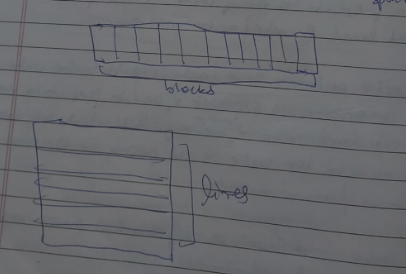 blocks
lines